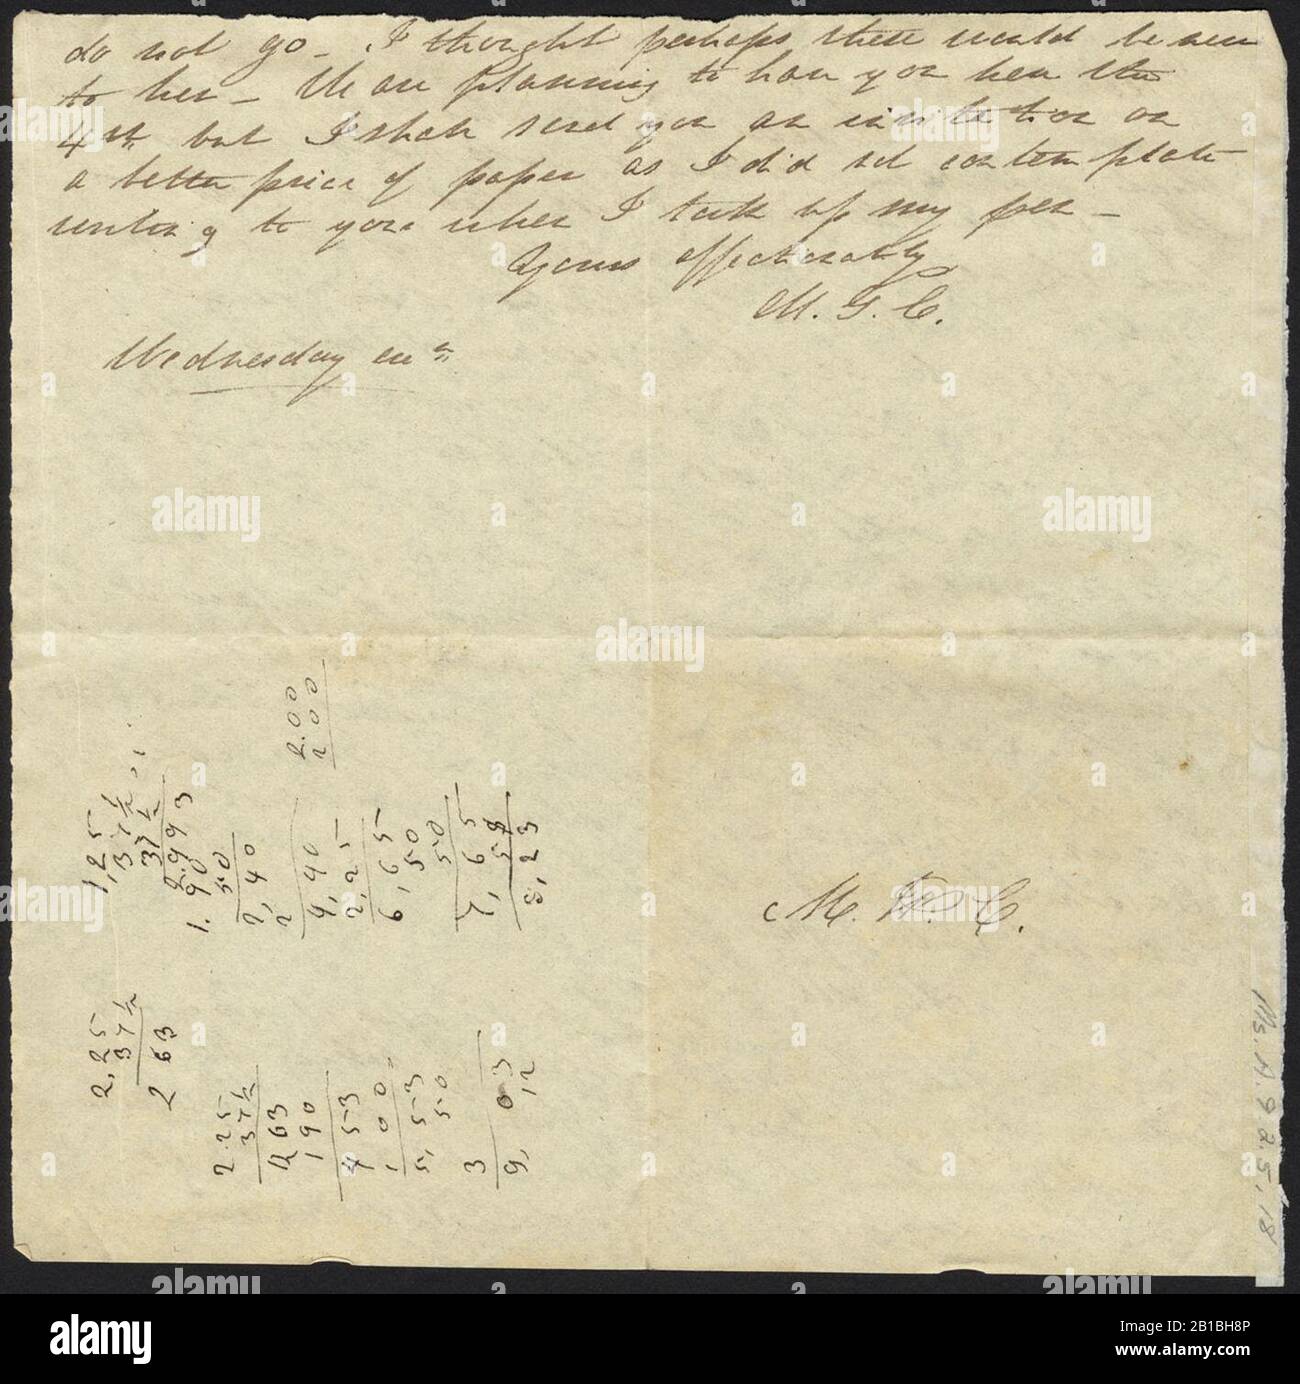 do not go – I thought perhaps there would be new
to her – We are planning to have you hear the
4th but I shall send you an invitation on
a better peice of paper as I did not contemplate
writing to you when I took up my pen –
Yours affectionately
M. G. C.
Wednesday
M. W. C.
2.00
2 00
1,25
37½
37½
1.90
50
2,40
2
4,90
2,25
6,65
50
50
7,65
58
8,23
2,25
37½
2 63
2.25
37½
2,63
1 90
4 53
1 00
5,53
50
3
9, 03
12
Ms. A. 9.2.5, 18
alamy
Image ID: 2B1BH8P
www.alamy.com